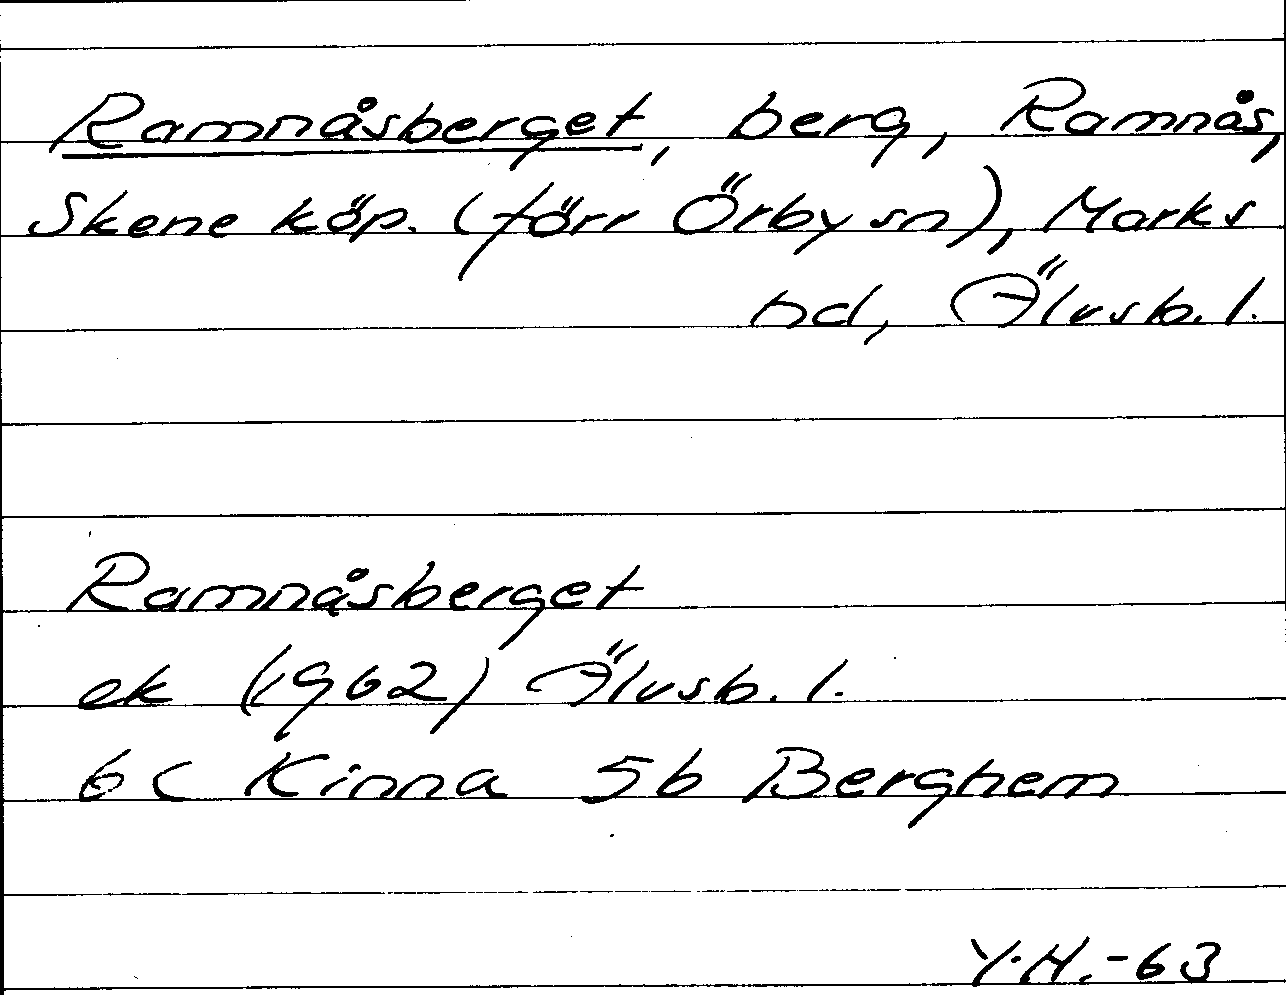 Ramnåsberget, berg, Ramnås,
Skene köp. (förr Örby sn), Marks
hd, Älvsb. l.
Ramnåsberget
ek (1962) Älvsb. l.
6C Kinna 5b Berghem
Y.H.-63